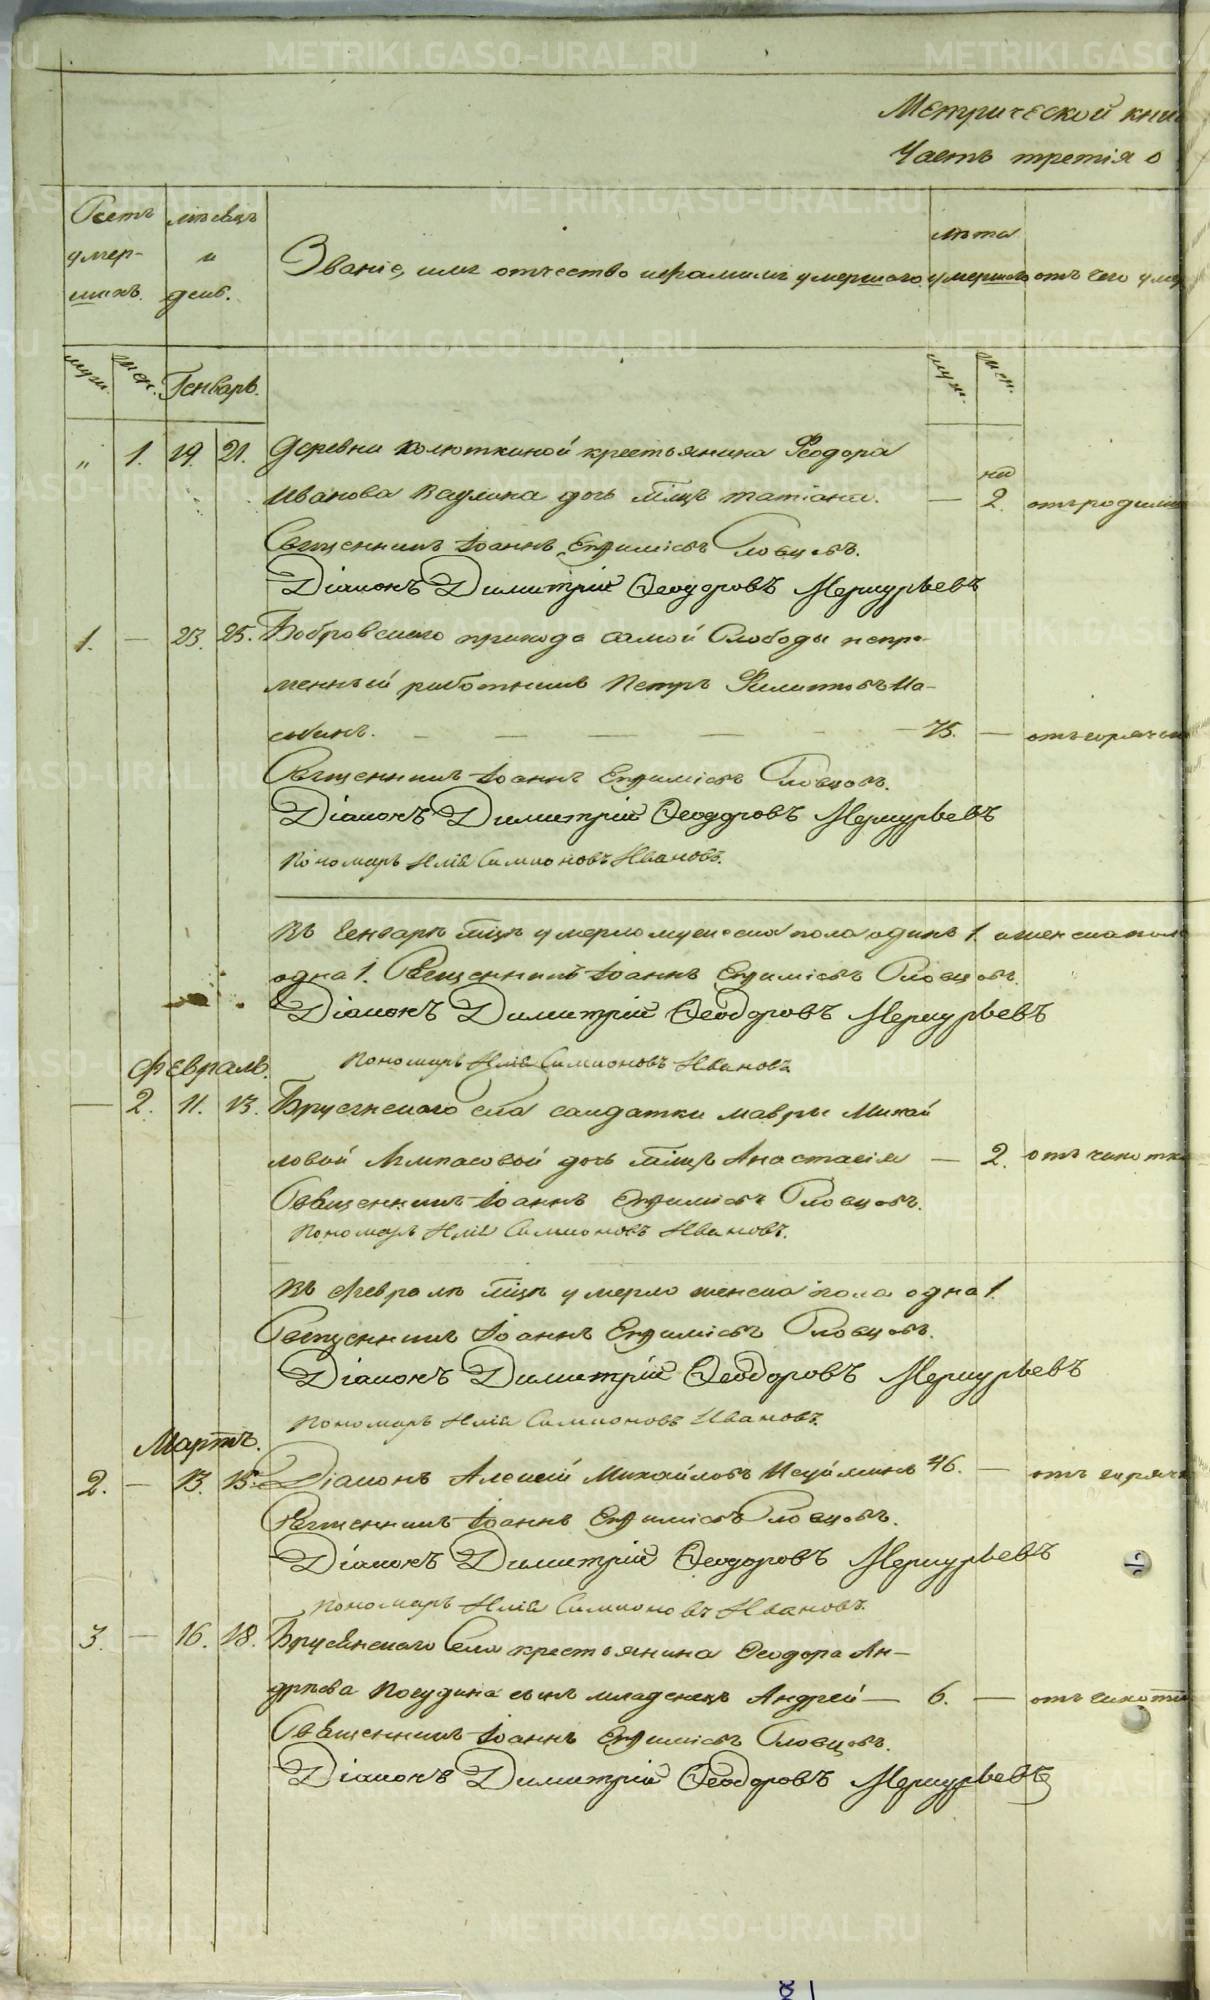 Метрической кни
Часть третія о
Счетъ умершихъ.
мѣсяцъ и день.
Званіе, имя отчество и фамилія умершаго
лѣта умершаго
отъ чего умер
муж. жен. Генварь. муж. жен.
„ 1. 19. 21. Деревни Колюткиной крестьянина Ѳеодора
Иванова Ваулина дочь млнцъ Татіана. — 2. отъ родимц
Священникъ Іоаннъ Евѳиміевъ Словцовъ.
Діаконъ Димитрій Ѳеодоровъ Меркурьевъ
1. — 23. 25. Бобровскаго прихода самой Слободы непре-
менный работникъ Петръ Филиповъ
75. — отъ горячк
Священникъ Іоаннъ Евѳиміевъ Словцовъ.
Діаконъ Димитрій Ѳеодоровъ Меркурьевъ
Пономарь Илія Симионовъ Ивановъ.
Въ Генварѣ мцѣ умерло мужеска пола одинъ 1. а женска пола
одна 1. Священникъ Іоаннъ Евѳиміевъ Словцовъ.
Діаконъ Димитрій Ѳеодоровъ Меркурьевъ
Пономарь Илія Симионовъ Ивановъ
Февраль.
— 2. 11. 13. Брусянскаго села салдатки Мавры Михай
ловой дочь млнцъ Анастасія — 2. отъ чихотк
Священникъ Іоаннъ Евѳиміевъ Словцовъ.
Пономарь Илія Симионовъ Ивановъ.
Въ Февралѣ мцѣ умерло женска пола одна 1.
Священникъ Іоаннъ Евѳиміевъ Словцовъ.
Діаконъ Димитрій Ѳеодоровъ Меркурьевъ
Пономарь Илія Симионовъ Ивановъ.
Мартъ.
2. — 13. 15. Діаконъ Алексій Михайловъ 46. — отъ горячк
Священникъ Іоаннъ Евѳиміевъ Словцовъ.
Діаконъ Димитрій Ѳеодоровъ Меркурьевъ
Пономарь Илія Симионовъ Ивановъ.
3. — 16. 18. Брусянскаго села крестьянина Ѳеодора Ан-
дрѣева Посудина сынъ младенецъ Андрей — 6. — отъ чихотк
Священникъ Іоаннъ Евѳиміевъ Словцовъ.
Діаконъ Димитрій Ѳеодоровъ Меркурьевъ
METRIKI.GASO-URAL.RU